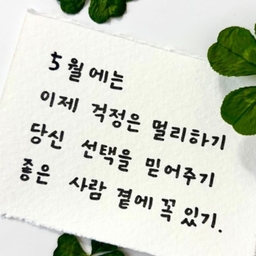 5월에는
이제 걱정은 멀리하기
당신 선택을 믿어주기
좋은 사람 곁에 꼭 있기.